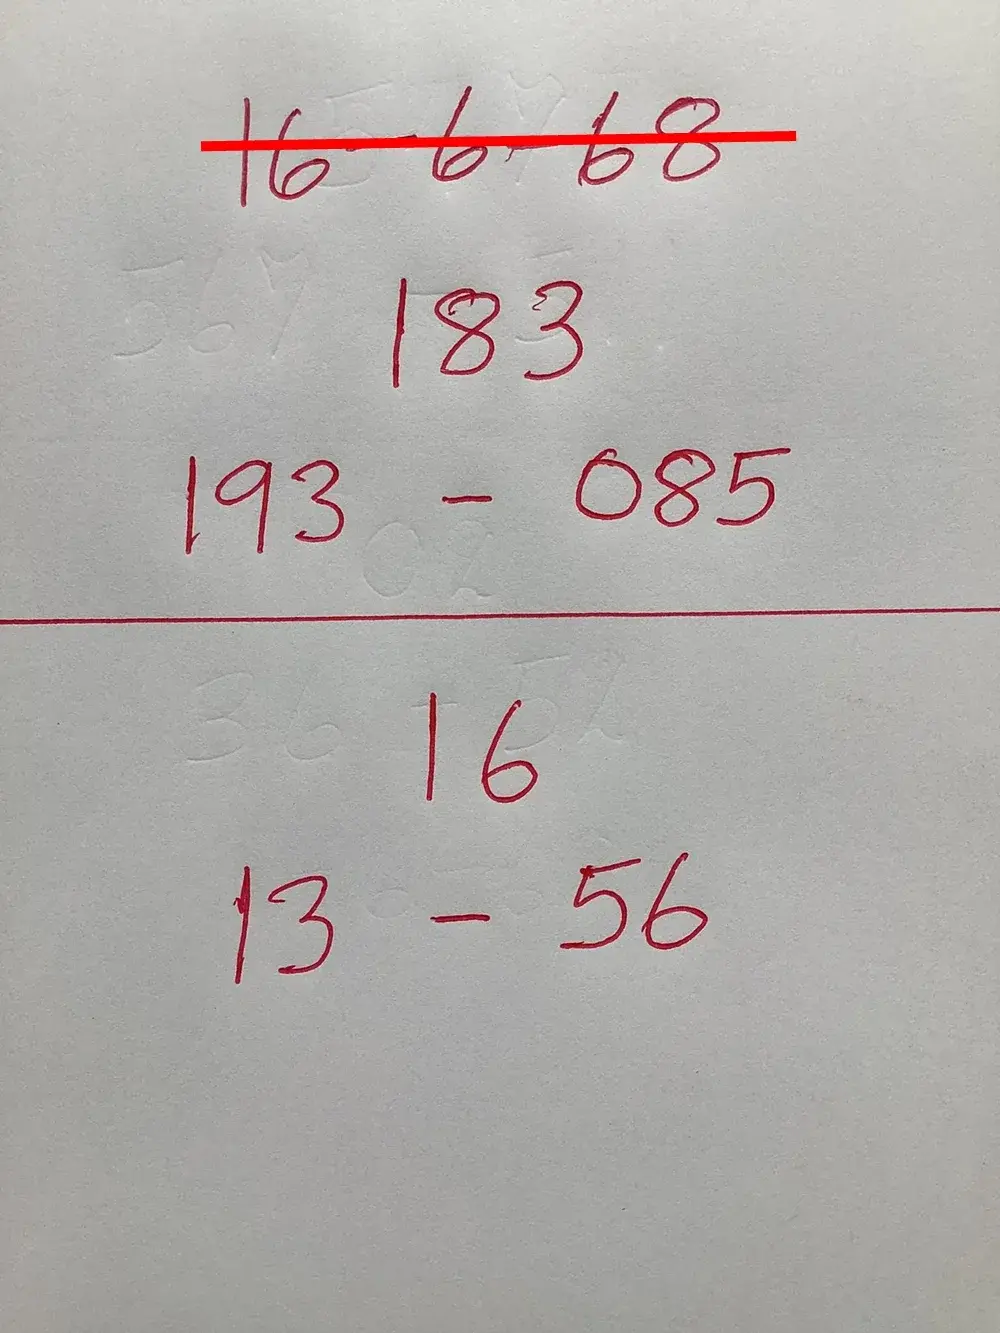 16-6-68
183
193 - 085
16
13 - 56